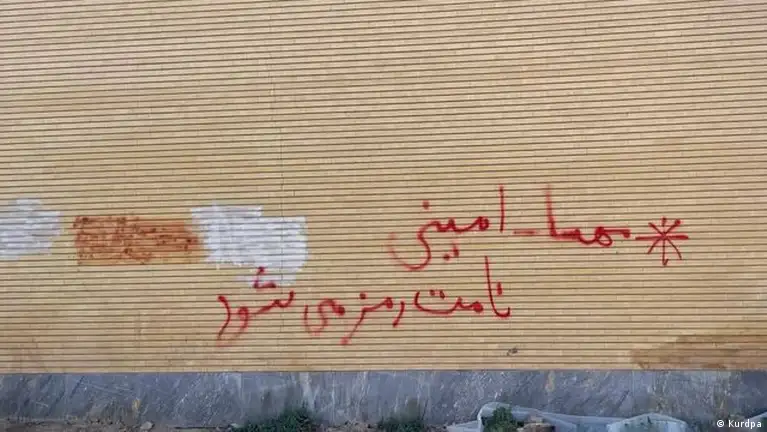 * مهسا_امینی
نامت رمز می شود
© Kurdpa